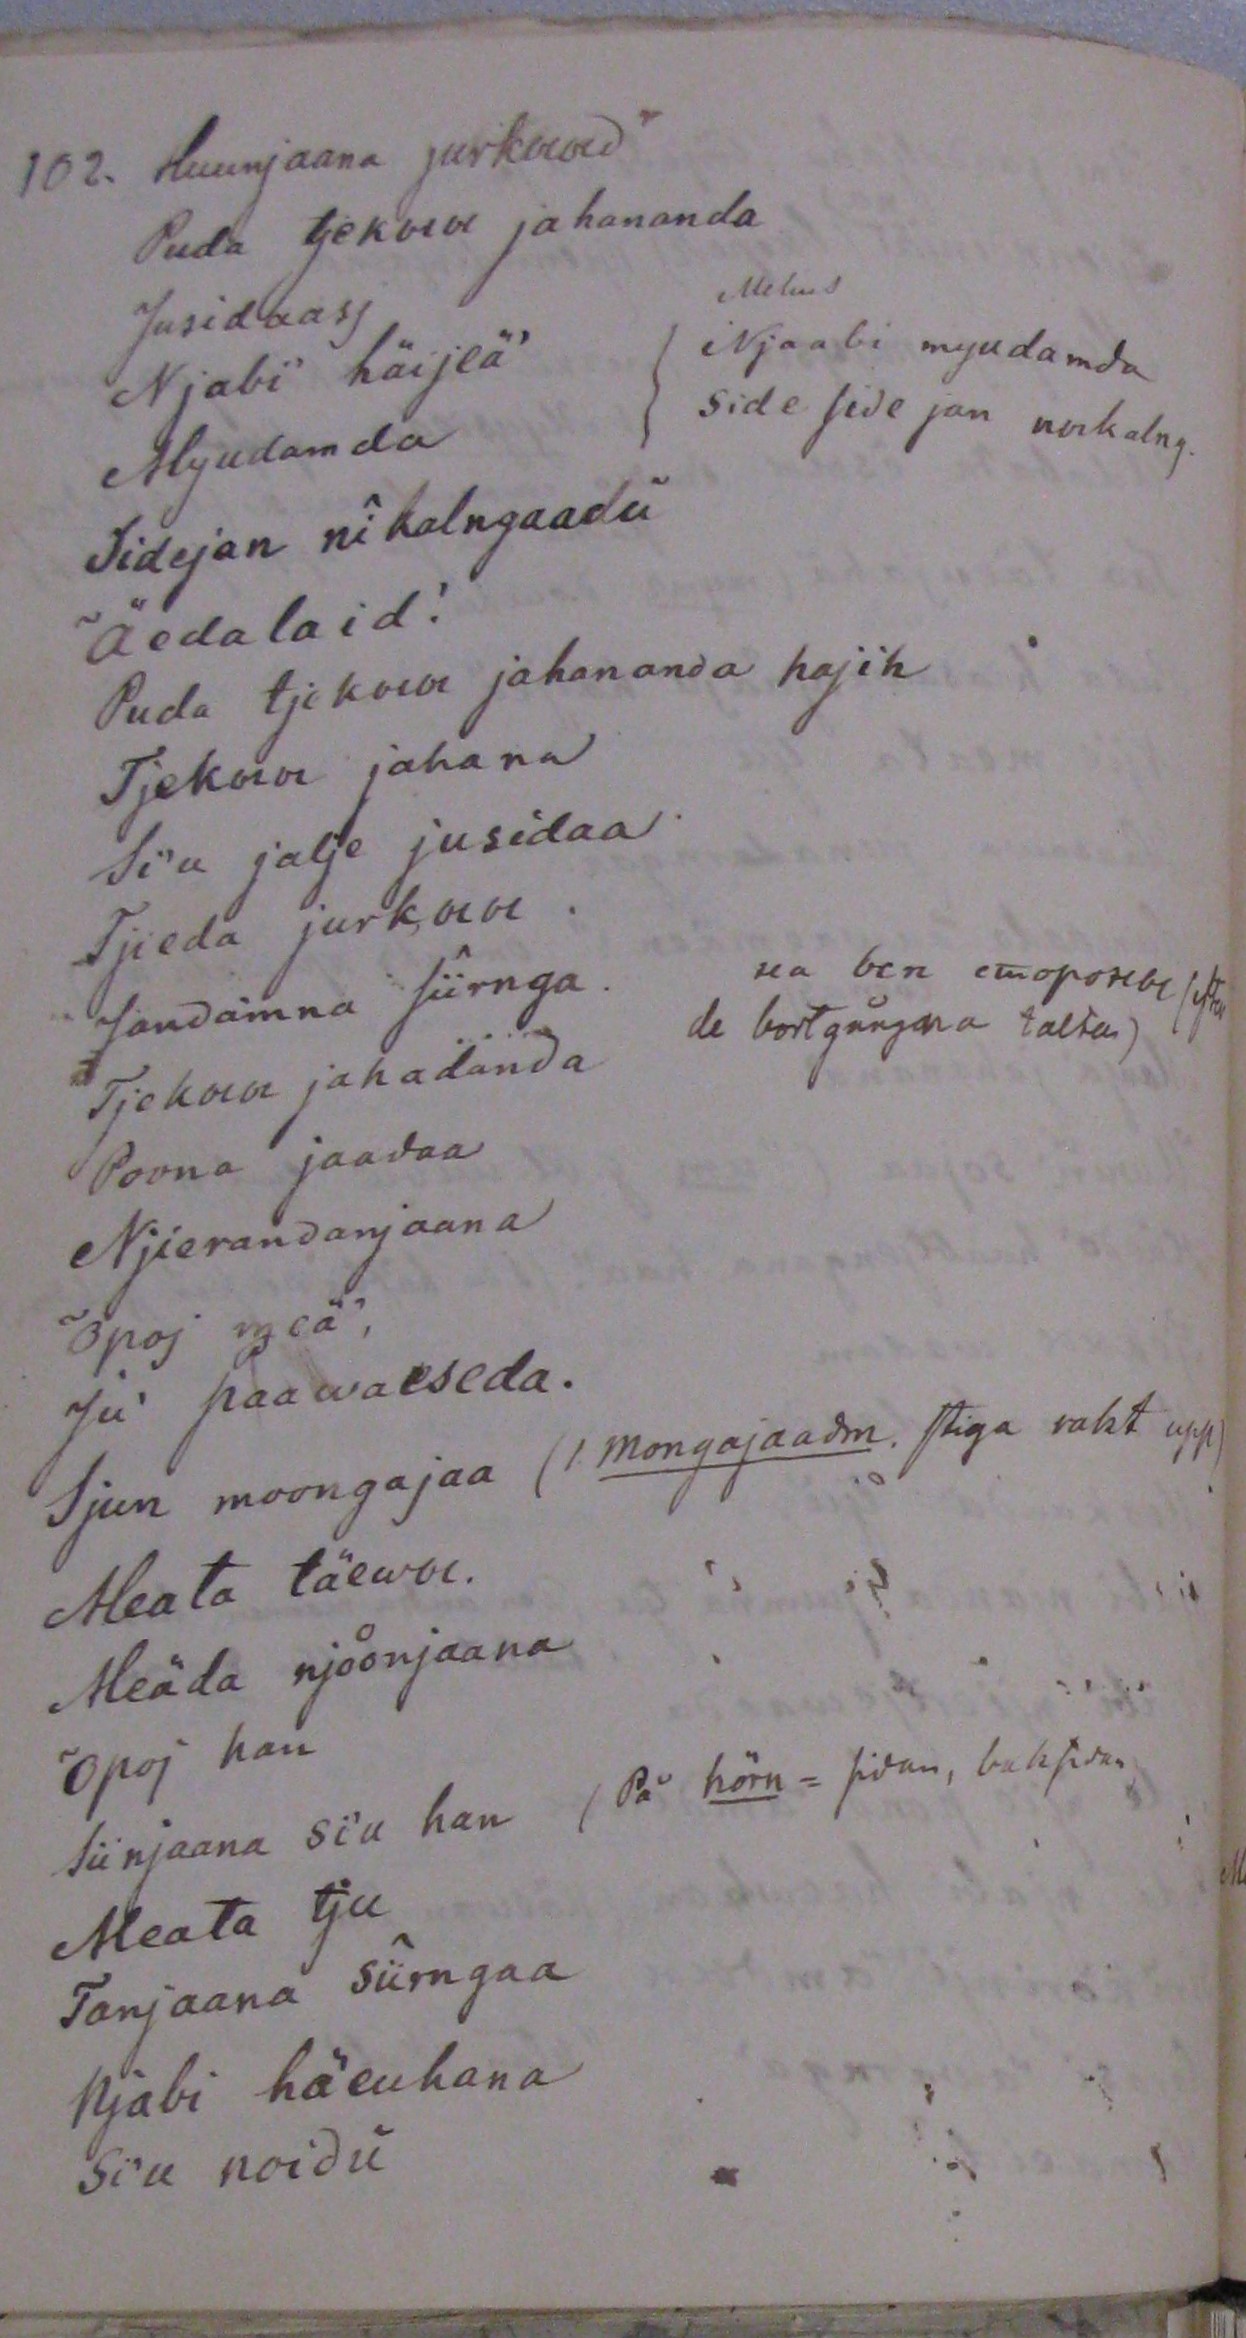 102. Huunjaana jurkowo
Puda tjekowo jahananda
Jusidaasj
Njabi häijeä'
Myudamda
Njaabi myudamda
side side jan nokalng.
Sidejan nîkalngaadü
Äedalaid!
Puda tjekowo jahananda hajih
Tjekowo jahana
Si'u jalje jusidaa
Tjieda jurkowo.
Jandämna sîirnga.
Tjekowo jahadända
на вси стороны (efter
de bortgångna tälten)
Poona jaadaa
Njierandanjaana
Opoj meä',
Ju' paawaeseda.
Sjun moongajaa (l. mongajaadm. stiga rakt upp)
Meata täewo.
Meäda njöönjaana
Opoj han
Siinjaana si'u han (På hörn = sidan, baksidan
Meata tju
Tanjaana sîirngaa
Njabi häeuhana
Si'u noidü